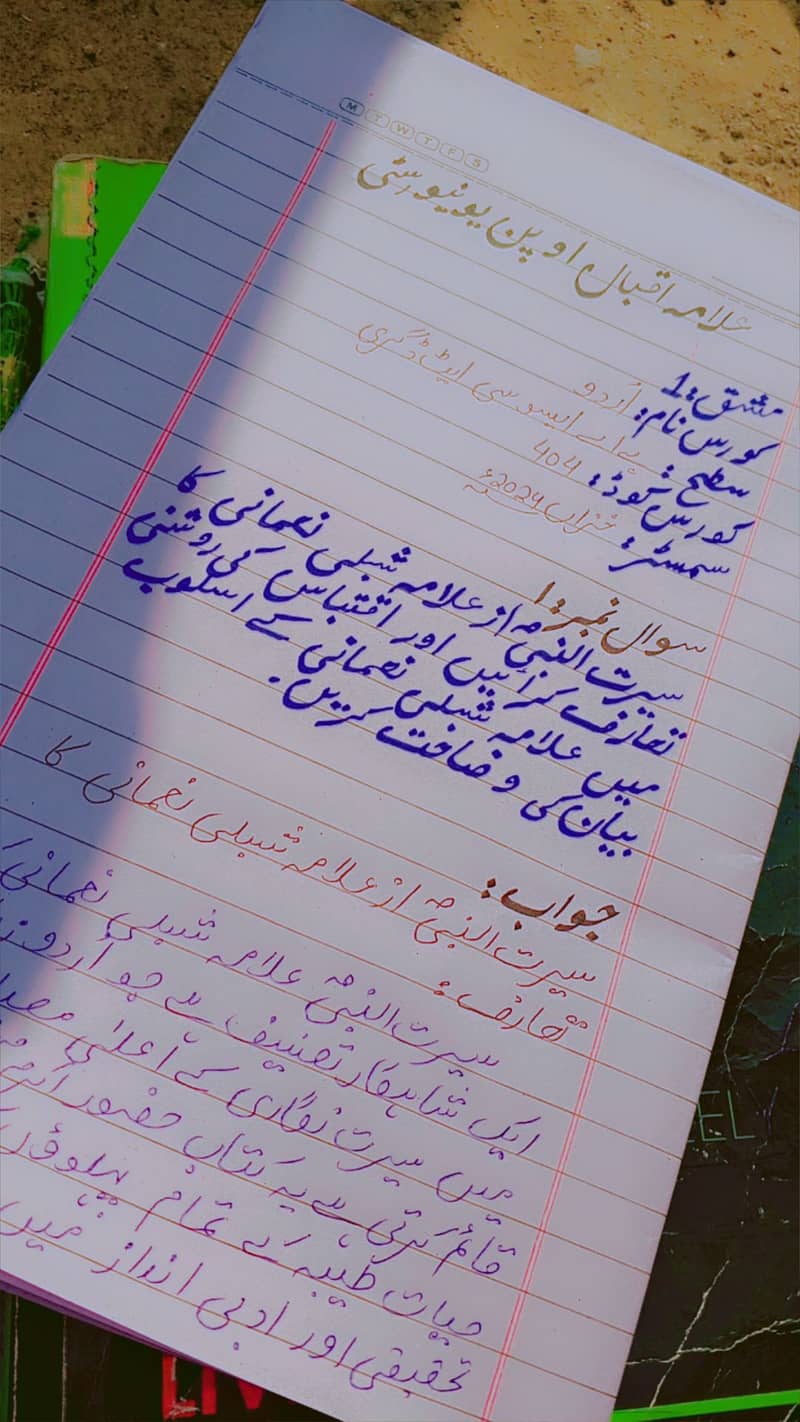 M T W T F S
علامہ اقبال اوپن یونیورسٹی
مشق: 1
کورس نام: اُردو
سطح: بی اے ایسوسی ایٹ ڈگری
کورس کوڈ: 404
سمسٹر: خزاں 2024ء
سوال نمبر: 1
سیرت النبیؐ از علامہ شبلی نعمانی کا
تعارف کرائیں اور اقتباس کی روشنی
میں علامہ شبلی نعمانی کے اسلوب
بیان کی وضاحت کریں.
جواب:
سیرت النبیؐ از علامہ شبلی نعمانی کا
تعارف:
سیرت النبیؐ علامہ شبلی نعمانی
ایک شاہکار تصنیف ہے جو اُردو
میں سیرت نگاری کے اعلیٰ
قائم کرتی ہے یہ کتاب حضور اکرم
حیات طیبہ کے تمام پہلوؤں
تحقیقی اور ادبی انداز میں
EEL
LIV